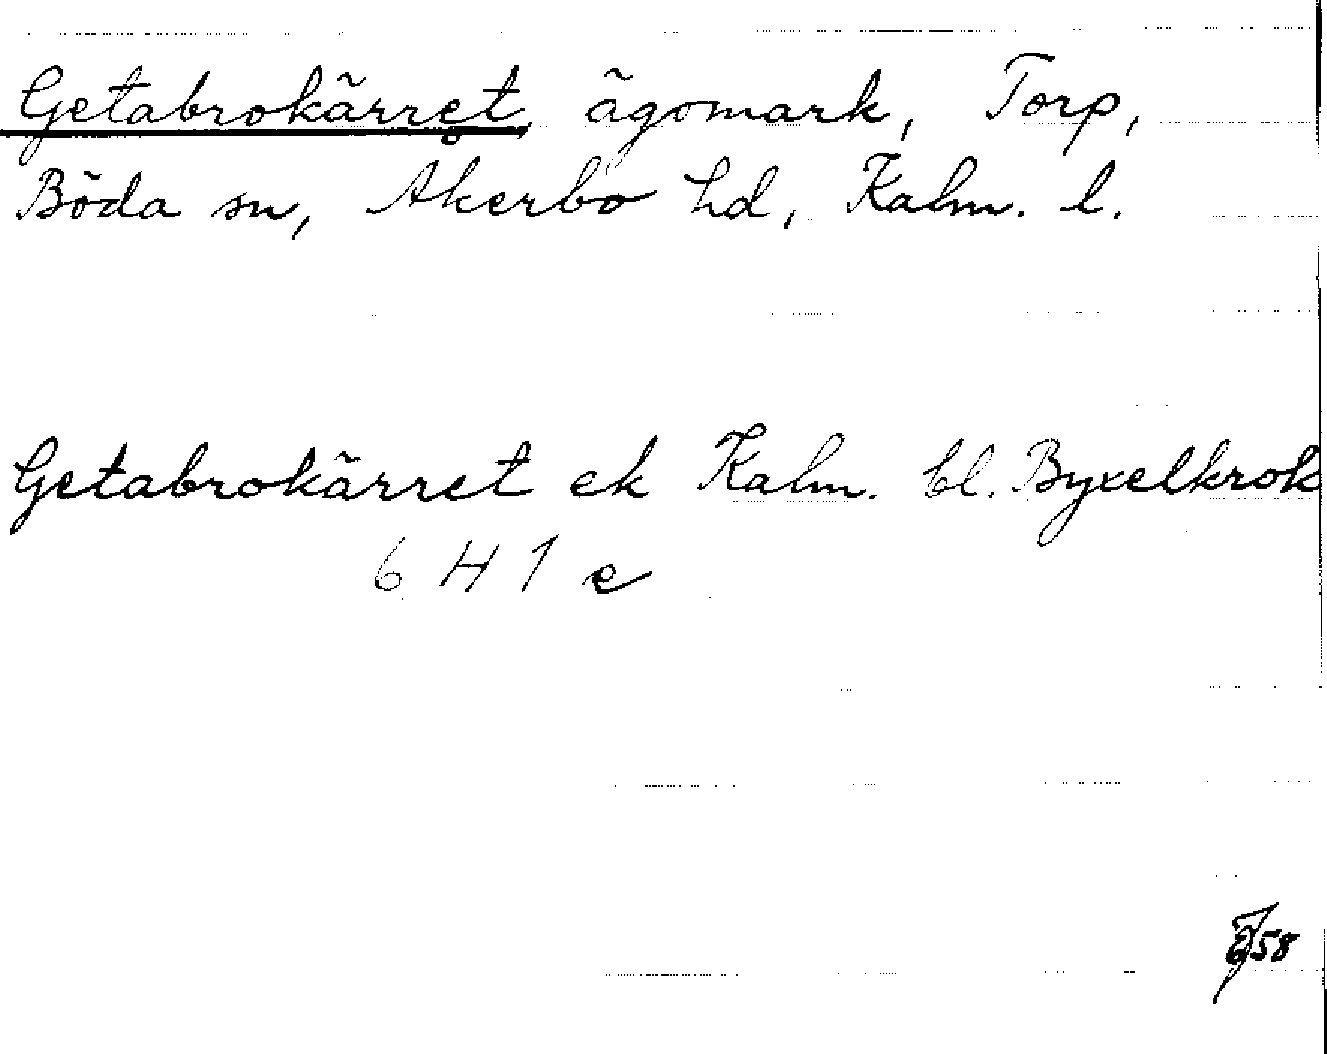 Getabrokärret, ägomark, Torp,
Böda sn, Åkerbo hd, Kalm. l.
Getabrokärret ek Kalm. bl. Byxelkrok
6 H 1 e
58